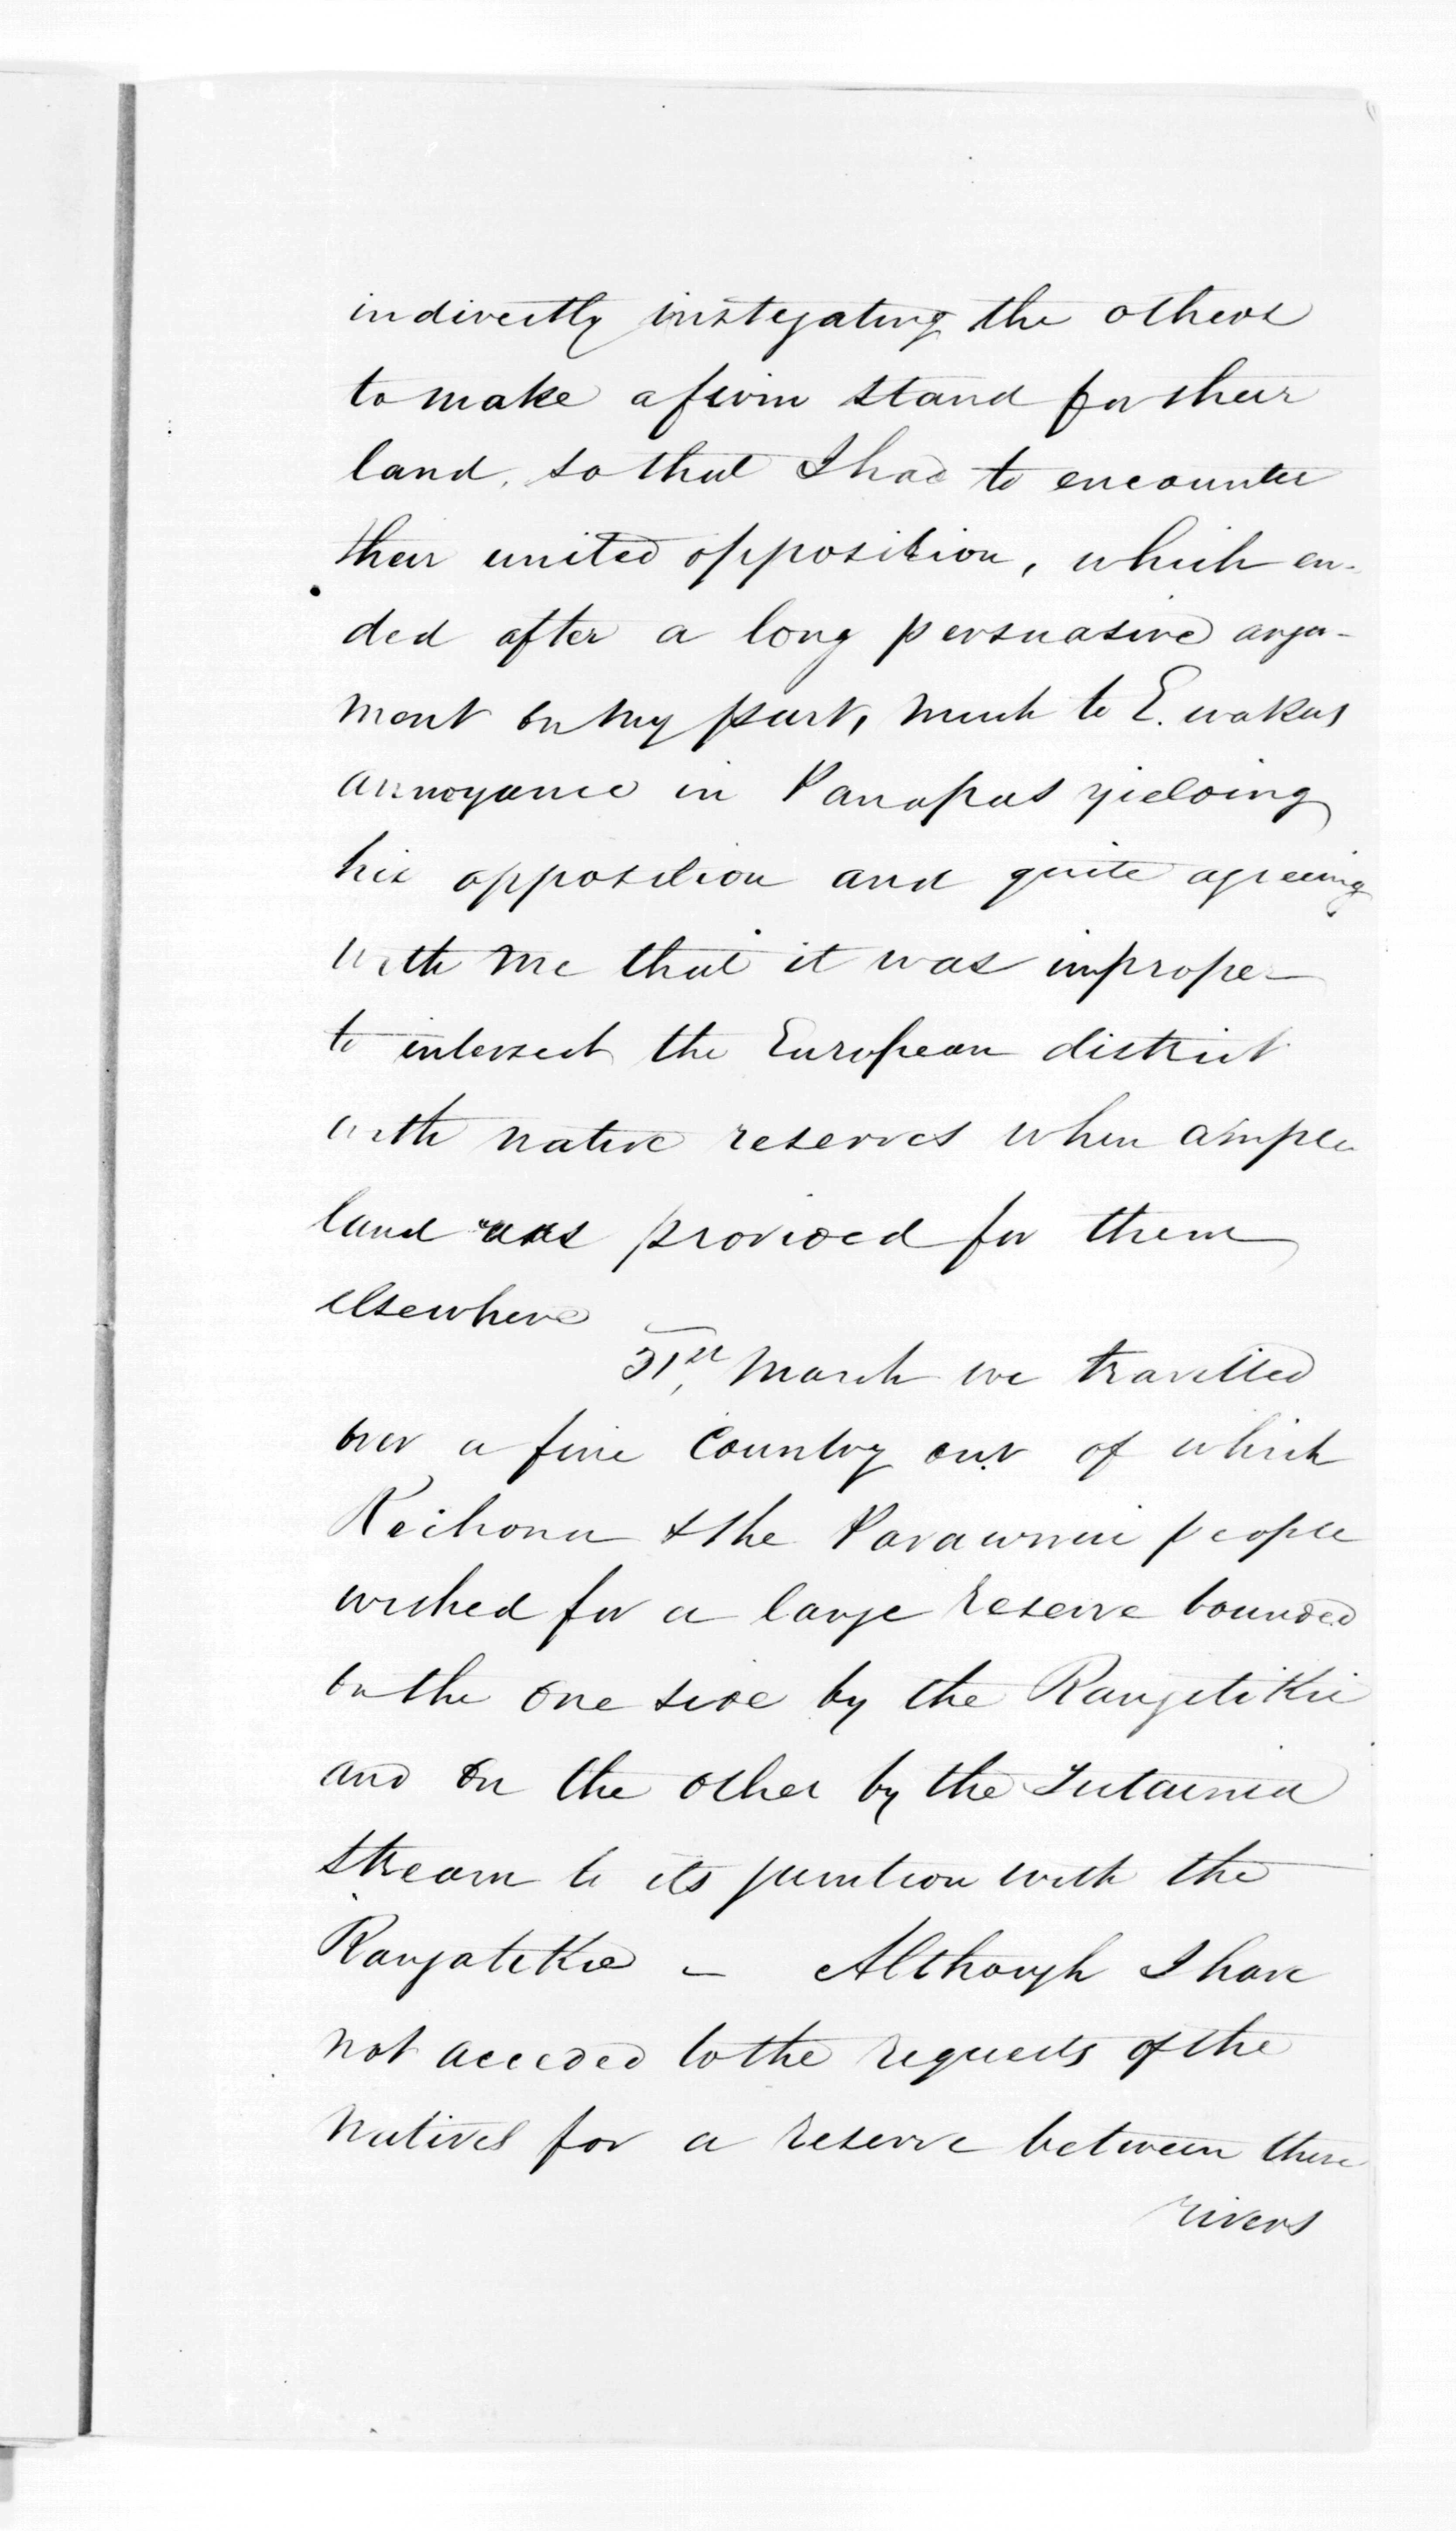 indirectly instegating the others
to make a firm stand for their
land, so that I had to encounter
their united opposition, which en-
ded after a long persuasive argu-
ment on my part, much to E. wakas
annoyance in Panapas yielding
his opposition and quite agreeing
with me that it was improper
to intersect the European district
with native reserves when ample
land was provided for them
elsewhere
31st, March we travelled
over a fine Country out of which
& the people
wished for a large reserve bounded
on the one side by the Rangitikie
and on the other by the
stream to its junction with the
Rangatikie — Although I have
not acceded to the requests of the
natives for a reserve between these
rivers